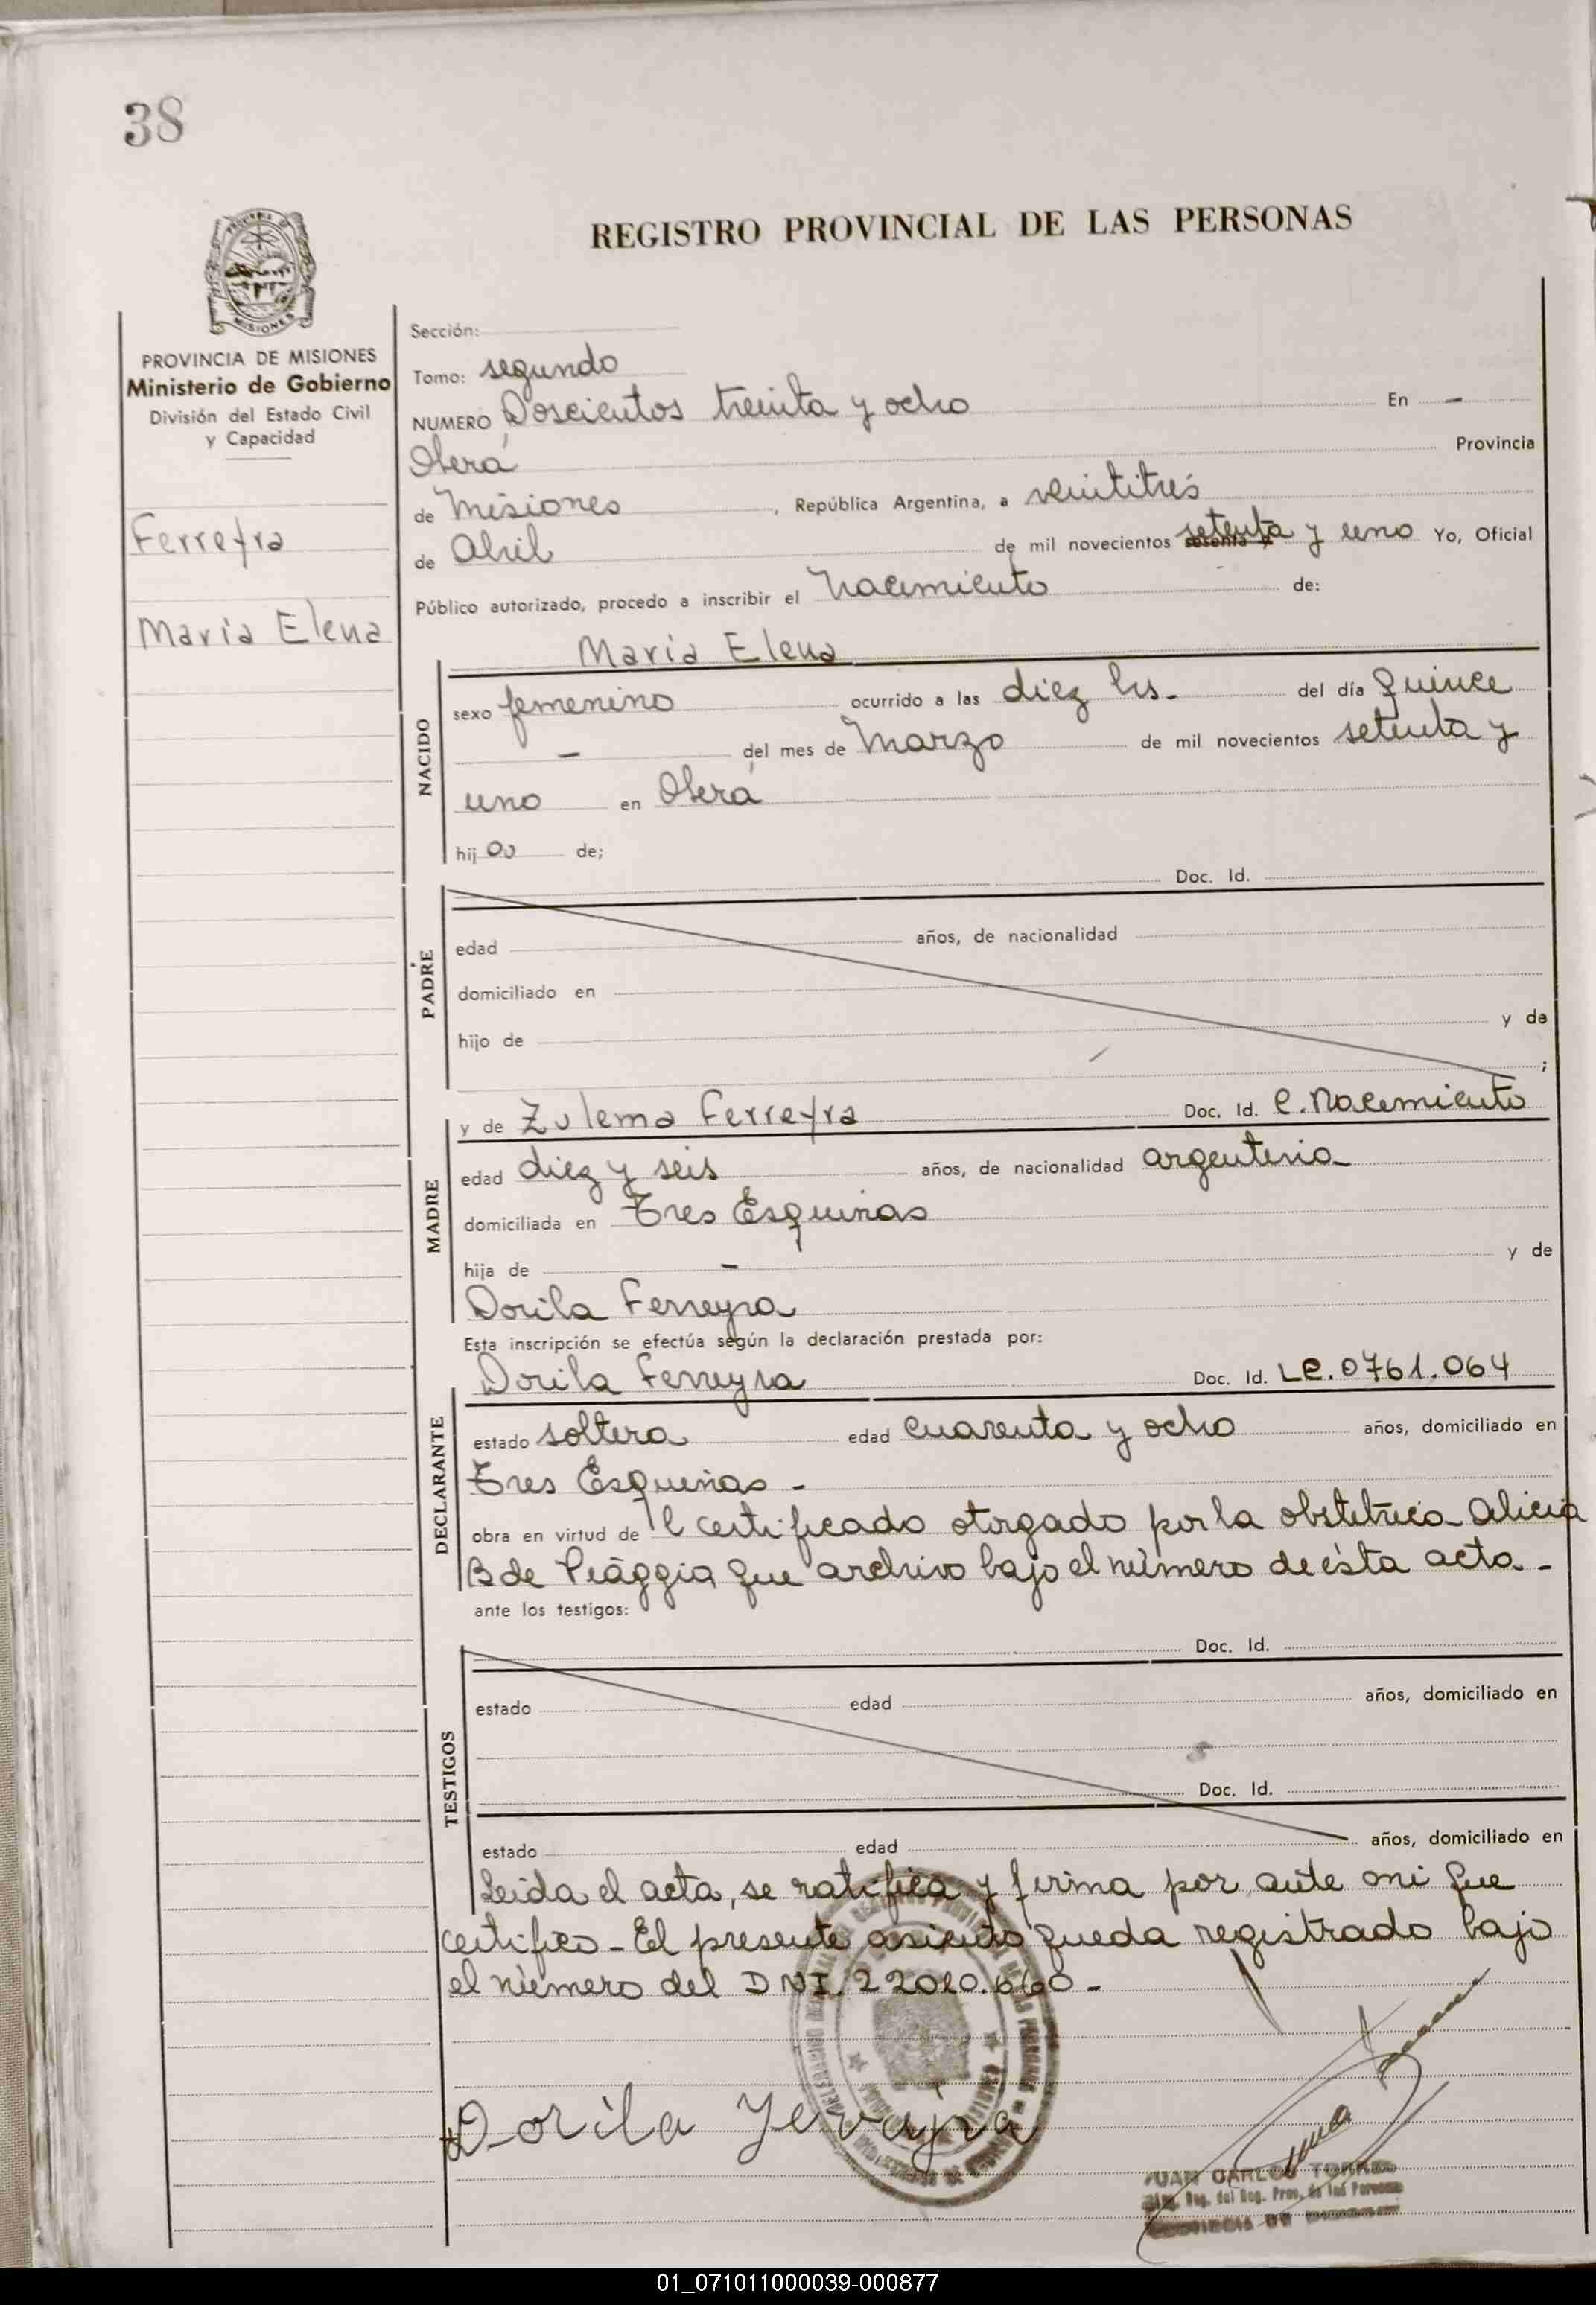 38
REGISTRO PROVINCIAL DE LAS PERSONAS
MISIONES
PROVINCIA DE MISIONES
Ministerio de Gobierno
División del Estado Civil
y Capacidad
Ferreyra
Maria Elena
Sección:
Tomo: segundo
NUMERO Doscientos treinta y ocho En -
Oberá Provincia
de Misiones, República Argentina, a veintitrés
de Abril de mil novecientos setenta y uno Yo, Oficial
Público autorizado, procedo a inscribir el Nacimiento de:
Maria Elena
NACIDO
sexo femenino ocurrido a las diez hs. del día quince
- del mes de Marzo de mil novecientos setenta y
uno en Oberá
hij de;
Doc. Id.
PADRE
edad años, de nacionalidad
domiciliado en
hijo de y de
;
MADRE
y de Zulema Ferreyra Doc. Id. C. Nacimiento
edad diez y seis años, de nacionalidad argentina
domiciliada en Tres Esquinas
hija de - y de
Dorila Ferreyra
Esta inscripción se efectúa según la declaración prestada por:
Dorila Ferreyra Doc. Id. LC. 0761.064
DECLARANTE
estado soltera edad cuarenta y ocho años, domiciliado en
Tres Esquinas -
obra en virtud de'l certificado otorgado por la obstetrica Alicia
B de Piaggia que archivo bajo el número de ésta acta -
ante los testigos:
Doc. Id.
TESTIGOS
estado edad años, domiciliado en
Doc. Id.
estado edad años, domiciliado en
Leida el acta, se ratifica y firma por ante mi que
certifico - El presente asiento queda registrado bajo
el número del DNI. 22010.660 -
Dorila Ferreyra
JUAN CARLOS TORRES
01_071011000039-000877